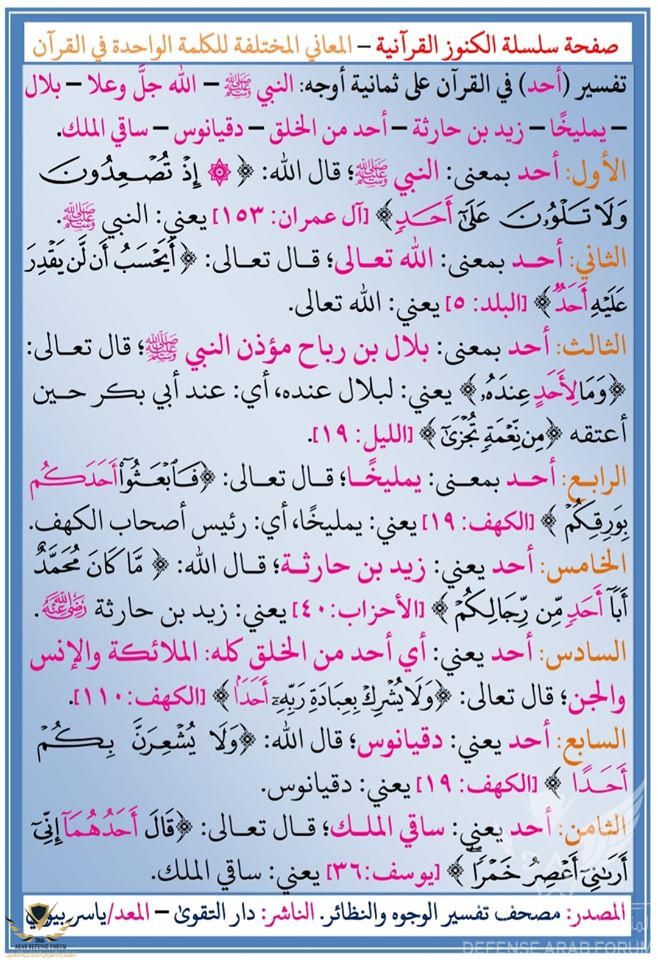 صفحة سلسلة الكنوز القرآنية – المعاني المختلفة للكلمة الواحدة في القرآن
تفسير (أحد) في القرآن على ثمانية أوجه: النبي ﷺ – الله جلَّ وعلا – بلال
– يمليخًا – زيد بن حارثة – أحد من الخلق – دقيانوس – ساقي الملك.
الأول: أحد بمعنى: النبي ﷺ؛ قال الله: ﴿ ۞ إِذْ تُصْعِدُونَ
وَلَا تَلْوُۥنَ عَلَىٰٓ أَحَدٍ﴾ [آل عمران: ١٥٣] يعني: النبي ﷺ.
الثاني: أحد بمعنى: الله تعالى؛ قال تعالى: ﴿أَيَحْسَبُ أَن لَّن يَقْدِرَ
عَلَيْهِ أَحَدٌ﴾ [البلد: ٥] يعني: الله تعالى.
الثالث: أحد بمعنى: بلال بن رباح مؤذن النبي ﷺ؛ قال تعالى:
﴿وَمَا لِأَحَدٍ عِندَهُۥ﴾ يعني: لبلال عنده، أي: عند أبي بكر حين
أعتقه ﴿مِن نِّعْمَةٍ تُجْزَىٰٓ﴾ [الليل: ١٩].
الرابع: أحد بمعنى: يمليخًا؛ قال تعالى: ﴿فَٱبْعَثُوٓا۟ أَحَدَكُم
بِوَرِقِكُمْ﴾ [الكهف: ١٩] يعني: يمليخًا، أي: رئيس أصحاب الكهف.
الخامس: أحد يعني: زيد بن حارثة؛ قال الله: ﴿ مَّا كَانَ مُحَمَّدٌ
أَبَآ أَحَدٍ مِّن رِّجَالِكُمْ﴾ [الأحزاب: ٤٠] يعني: زيد بن حارثة رضي الله عنه.
السادس: أحد يعني: أي أحد من الخلق كله: الملائكة والإنس
والجن؛ قال تعالى: ﴿وَلَا يُشْرِكْ بِعِبَادَةِ رَبِّهِۦٓ أَحَدًۢا﴾ [الكهف: ١١٠].
السابع: أحد يعني: دقيانوس؛ قال الله: ﴿وَلَا يُشْعِرَنَّ بِكُمْ
أَحَدًا ﴾ [الكهف: ١٩] يعني: دقيانوس.
الثامن: أحد يعني: ساقي الملك؛ قال تعالى: ﴿قَالَ أَحَدُهُمَآ إِنِّىٓ
أَرَىٰنِىٓ أَعْصِرُ خَمْرًا ﴾ [يوسف: ٣٦] يعني: ساقي الملك.
المصدر: مصحف تفسير الوجوه والنظائر. الناشر: دار التقوىٰ – المعد/ياسر بيومي
ARAB DEFENSE FORUM
DEFENSE ARAB FORUM